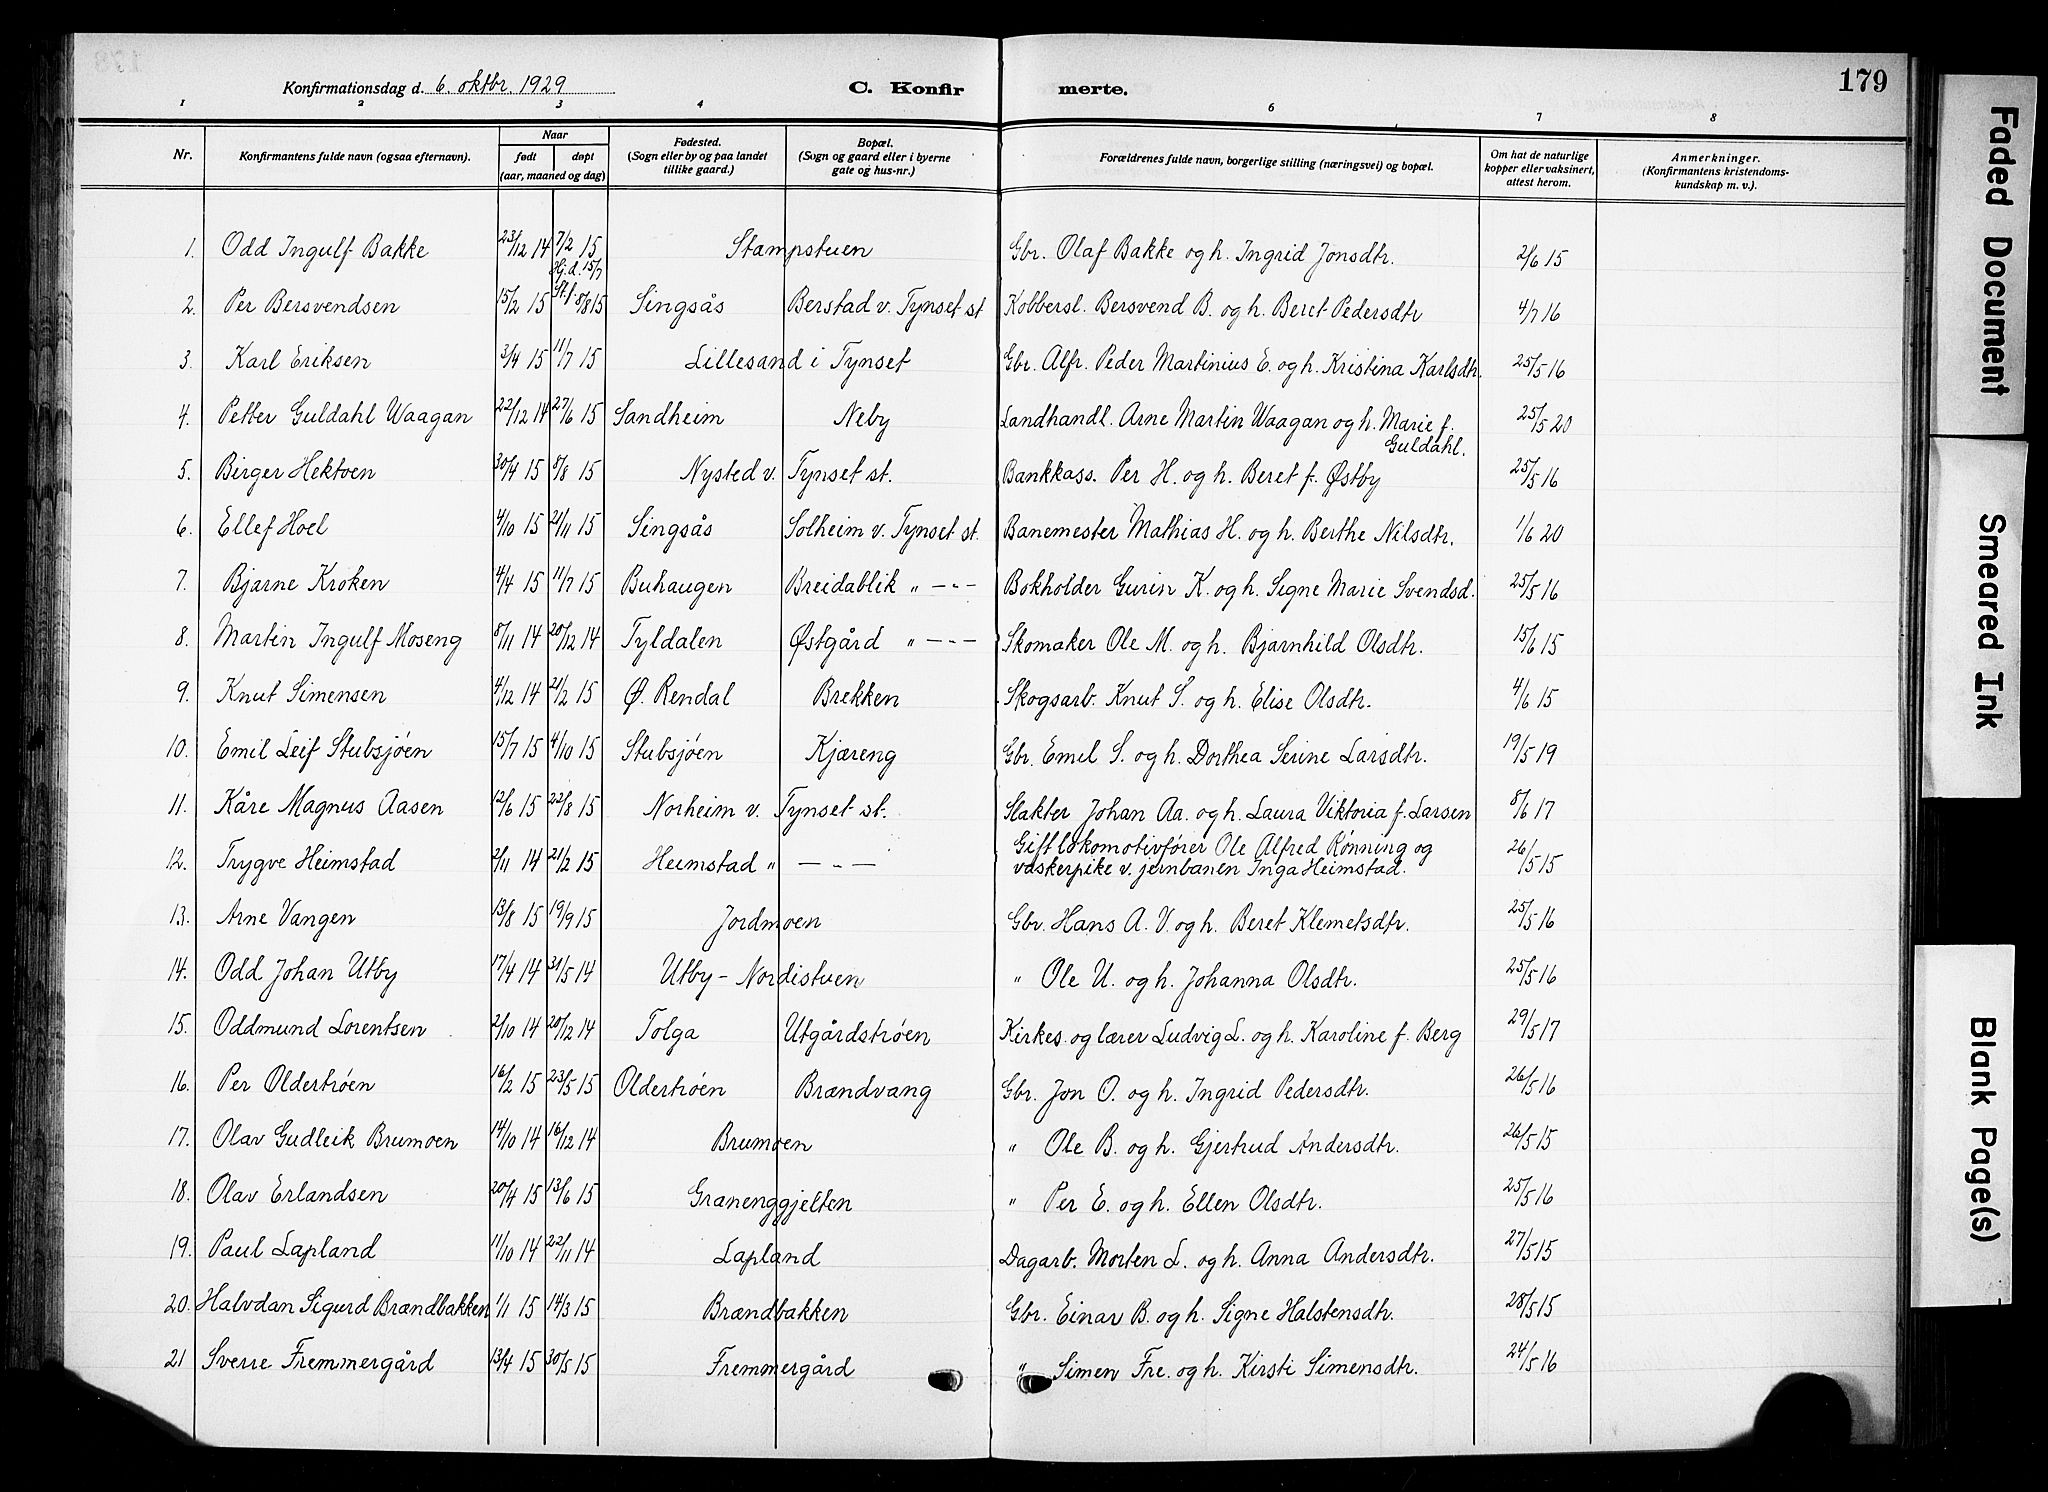 179
Konfirmationsdag d. 6. oktbr. 1929
C. Konfirmerte.
1 2 3 4 5 6 7 8
Nr.
Konfirmantens fulde navn (ogsaa efternavn).
Naar
født
døpt
(aar, maaned og dag)
Fødested.
(Sogn eller by og paa landet
tillike gaard.)
Bopæl.
(Sogn og gaard eller i byerne
gate og hus-nr.)
Forældrenes fulde navn, borgerlige stilling (næringsvei) og bopæl.
Om hat de naturlige
kopper eller vaksinert,
attest herom.
Anmerkninger.
(Konfirmantens kristendoms-
kundskap m. v.).
1. Odd Ingulf Bakke 23/12 14 7/2 15 Stampstuen Gbr. Olaf Bakke og h. Ingrid Jonsdtr. 2/6 15
2. Per Bersvendsen 15/2 15 Hj.d. 15/7 St.f. 8/8 15 Singsås Berstad v. Tynset st Kobbersl. Bersvend B. og h. Beret Pedersdtr 4/7 16
3. Karl Eriksen 3/4 15 11/7 15 Lillesand i Tynset Gbr. Alfr. Peder Martinius E. og h. Kristina Karlsdtr. 25/5 16
4. Petter Guldahl Waagan 22/12 14 27/6 15 Sandheim Neby Landhandl. Arne Martin Waagan og h. Marie f. Guldahl. 25/5 20
5. Birger Hektoen 30/4 15 8/8 15 Nysted v. Tynset st. Bankkass. Per H. og h. Beret f. Østby 25/5 16
6. Ellef Hoel 4/10 15 21/11 15 Singsås Solheim v. Tynset st. Banemester Mathias H. og h. Berthe Nilsdtr. 1/6 20
7. Bjarne Kroken 4/4 15 11/7 15 Buhaugen Breidablik " – - – Bokholder Gurin K. og h. Signe Marie Svendsd. 25/5 16
8. Martin Ingulf Moseng 8/11 14 20/12 14 Tyldalen Østgård " – - – Skomaker Ole M. og h. Bjarnhild Olsdtr. 15/6 15
9. Knut Simensen 4/12 14 21/2 15 Ø. Rendal Brekken Skogsarb. Knut S. og h. Elise Olsdtr. 4/6 15
10. Emil Leif Stubsjöen 15/7 15 4/10 15 Stubsjöen Kjæreng Gbr. Emil S. og h. Dorthea Serine Larsdtr. 19/5 19
11. Kåre Magnus Aasen 12/6 15 22/8 15 Norheim v. Tynset st. Slakter Johan Aa. og h. Laura Viktoria f. Larsen 8/6 17
12. Trygve Heimstad 2/11 14 21/2 15 Heimstad " – - – Gift lokomotivfører Ole Alfred Rønning og
vaskerpike v. jernbanen Inga Heimstad. 26/5 15
13. Arne Vangen 13/8 15 19/9 15 Jordmoen Gbr. Hans A. V. og h. Beret Klemetsdtr. 25/5 16
14. Odd Johan Utby 17/4 14 31/5 14 Utby – Nordistuen " Ole U. og h. Johanna Olsdtr. 25/5 16
15. Oddmund Lorentsen 2/10 14 20/12 14 Tolga Utgårdströen Kirkes. og lærer Ludvig L. og h. Karoline f. Berg 29/5 17
16. Per Oldertröen 16/2 15 23/5 15 Oldertröen Brændvang Gbr. Jon O. og h. Ingrid Pedersdtr. 26/5 16
17. Olav Gudleik Brumoen 14/10 14 16/12 14 Brumoen " Ole B. og h. Gjertrud Andersdtr. 26/5 15
18. Olav Erlandsen 20/4 15 13/6 15 Granenggjelten " Per E. og h. Ellen Olsdtr. 25/5 16
19. Paul Lapland 11/10 14 22/11 14 Lapland Dagarb. Morten L. og h. Anna Andersdtr. 27/5 15
20. Halvdan Sigurd Brændbakken 1/1 15 14/3 15 Brændbakken Gbr. Einar B. og h. Signe Halstensdtr. 28/5 15
21 Sverre Fremmergård 13/4 15 30/5 15 Fremmergård " Simen Fre. og h. Kirsti Simensdtr. 24/5 16
Faded Document
Smeared Ink
Blank Page(s)